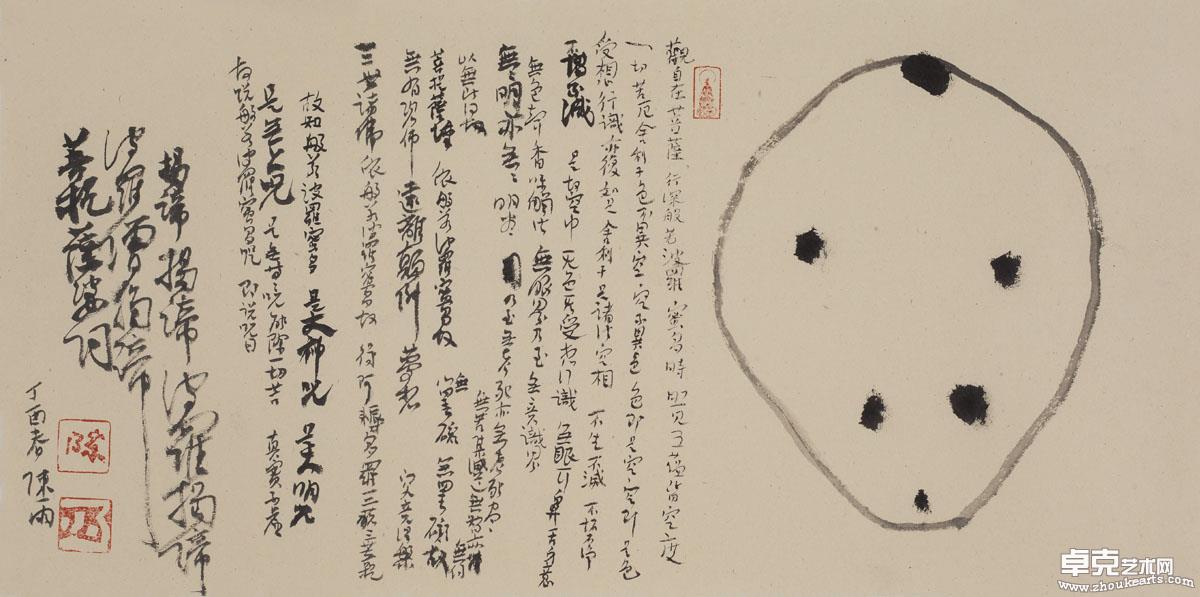 觀自在菩薩行深般若波羅蜜多時照見五蘊皆空度
一切苦厄舍利子色不異空空不異色色即是空空即是色
受想行識亦復如是舍利子是諸法空相不生不滅不垢不淨
不增不減是故空中無色無受想行識無眼耳鼻舌身意
無色聲香味觸法無眼界乃至無意識界
無無明亦無無明盡乃至無老死亦無老死盡
無苦集滅道無智亦無得
以無所得故
菩提薩埵依般若波羅蜜多故
無罣礙無罣礙故
無有恐怖遠離顛倒夢想究竟涅槃
三世諸佛依般若波羅蜜多故得阿耨多羅三藐三菩提
故知般若波羅蜜多是大神咒是大明咒
是無上咒是無等等咒能除一切苦真實不虛
故說般若波羅蜜多咒即說咒曰
揭諦揭諦波羅揭諦
波羅僧揭諦
菩提薩婆訶
丁酉春陳雨
陳
卓克艺术网
www.zhoukearts.com